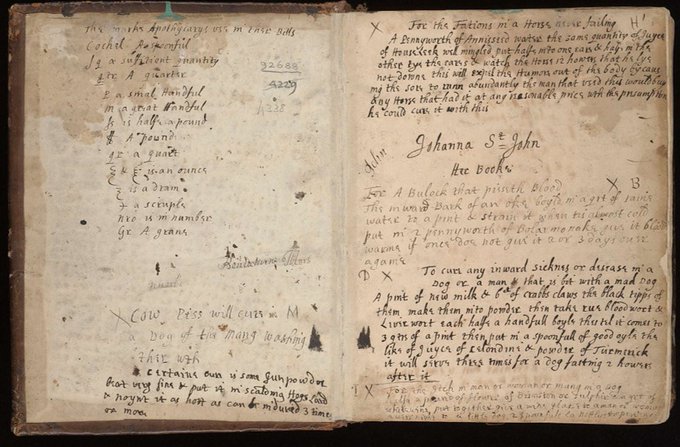 The marks Apothycarys use in ther Bills
Cochel A spoonful
A sufitient quantity
qtr A quarter
P a smal Handful
m a great Handful
ss is halfe a pound
A Pound
qr a quart
is an ounce
is a dram
a scruple
nro is in number
Gr A grane
92688
4338
X Cow Piss will cure in M
a Dog of the mang washing
ther with
A certaine cure is some Gunpowder
beat very fine & put it in scalding Hogs Lard
& noynt it as hott as can be indured 3 times
or more
X For the Fations in a Horse never failing H
A Pennyworth of Annisseed water the same quantity of Juyce
of Houseleek well mingled put halfe into one eare & halfe in the
other tye the eares & watch the Horse 12 howers that he lye
not downe this will expell the Humor out of the body by caus
ing the sors to runn abundantly the man that used this would buy
any Horse that had it at any reasonable price with the presumption
he could cure it with this
Johanna St John
Her Booke
For A Bulock that pisseth Blood X B
The inward Bark of an oke boyle in a qrt of
water to a pint & strain it when tis almost cold
put in 2 pennyworth of Bolarmonake give it blood
warme if once does not give it 2 or 3 days over
againe
D X To cure any inward sicknes or disease in a
Dog or a man that is bit with a mad Dog
A pint of new milk & of crabbs claws the black tipps of
them make them into powder then take rue bloodwort &
Liverwort each halfe a handfull boyle thes tel it comes to
3 qtrs of a pint then put in a spoonfull of good oyle the
like of Juyce of Celondine & powder of Turmerick
it will serve three times for a Dog fasting 2 howers
after it
X For the Itch in man or woman or mang in a Dog
halfe a pound of flower of Brimston or sulphur a qrt of